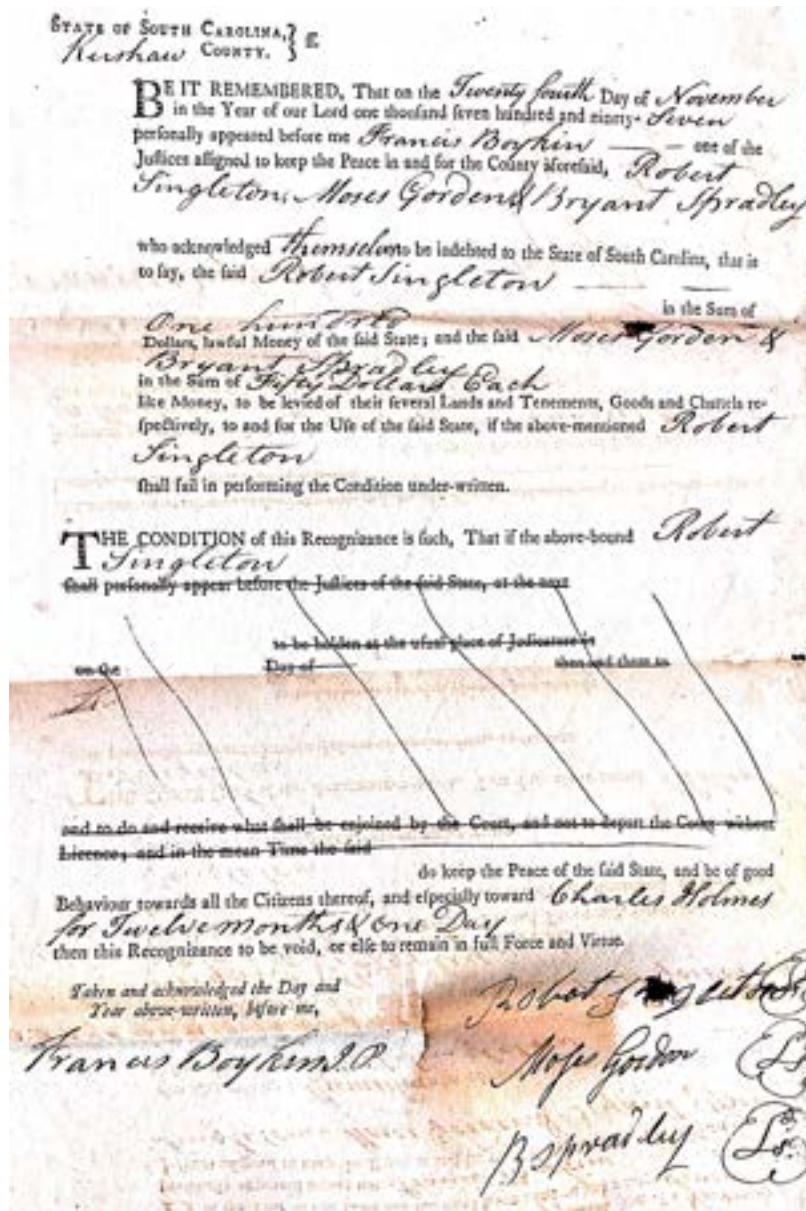 STATE OF SOUTH CAROLINA,
Kershaw COUNTY.
BE IT REMEMBERED, That on the Twenty fourth Day of November
in the Year of our Lord one thouſand ſeven hundred and ninety-Seven
perſonally appeared before me Francis Boykin — — one of the
Juſtices aſſigned to keep the Peace in and for the County aforeſaid, Robert
Singleton, Moses Gorden & Bryant Spradley
who acknowledged themselves to be indebted to the State of South Carolina, that is
to ſay, the ſaid Robert Singleton — —
in the Sum of
One hundred
Dollars, lawful Money of the ſaid State; and the ſaid Moses Gorden &
Bryant Spradley
in the Sum of Fifty Dollars Each
like Money, to be levied of their ſeveral Lands and Tenements, Goods and Chattels re-
ſpectively, to and for the Uſe of the ſaid State, if the above-mentioned Robert
Singleton
ſhall fail in performing the Condition under-written.
THE CONDITION of this Recognizance is ſuch, That if the above-bound Robert
Singleton
ſhall perſonally appear before the Juſtices of the ſaid State, at the next
to be holden at the uſual place of Judicature in
on the Day of then and there to
and to do and receive what ſhall be enjoined by the Court, and not to depart the Court without
Licence; and in the mean Time the ſaid
do keep the Peace of the ſaid State, and be of good
Behaviour towards all the Citizens thereof, and eſpecially toward Charles Holmes
for Twelve months & one Day
then this Recognizance to be void, or elſe to remain in full Force and Virtue.
Taken and acknowledged the Day and
Year above-written, before me,
Robert Singleton
Francis Boykin J.P.
Moſes Gordon Ls
B Spradley Ls.